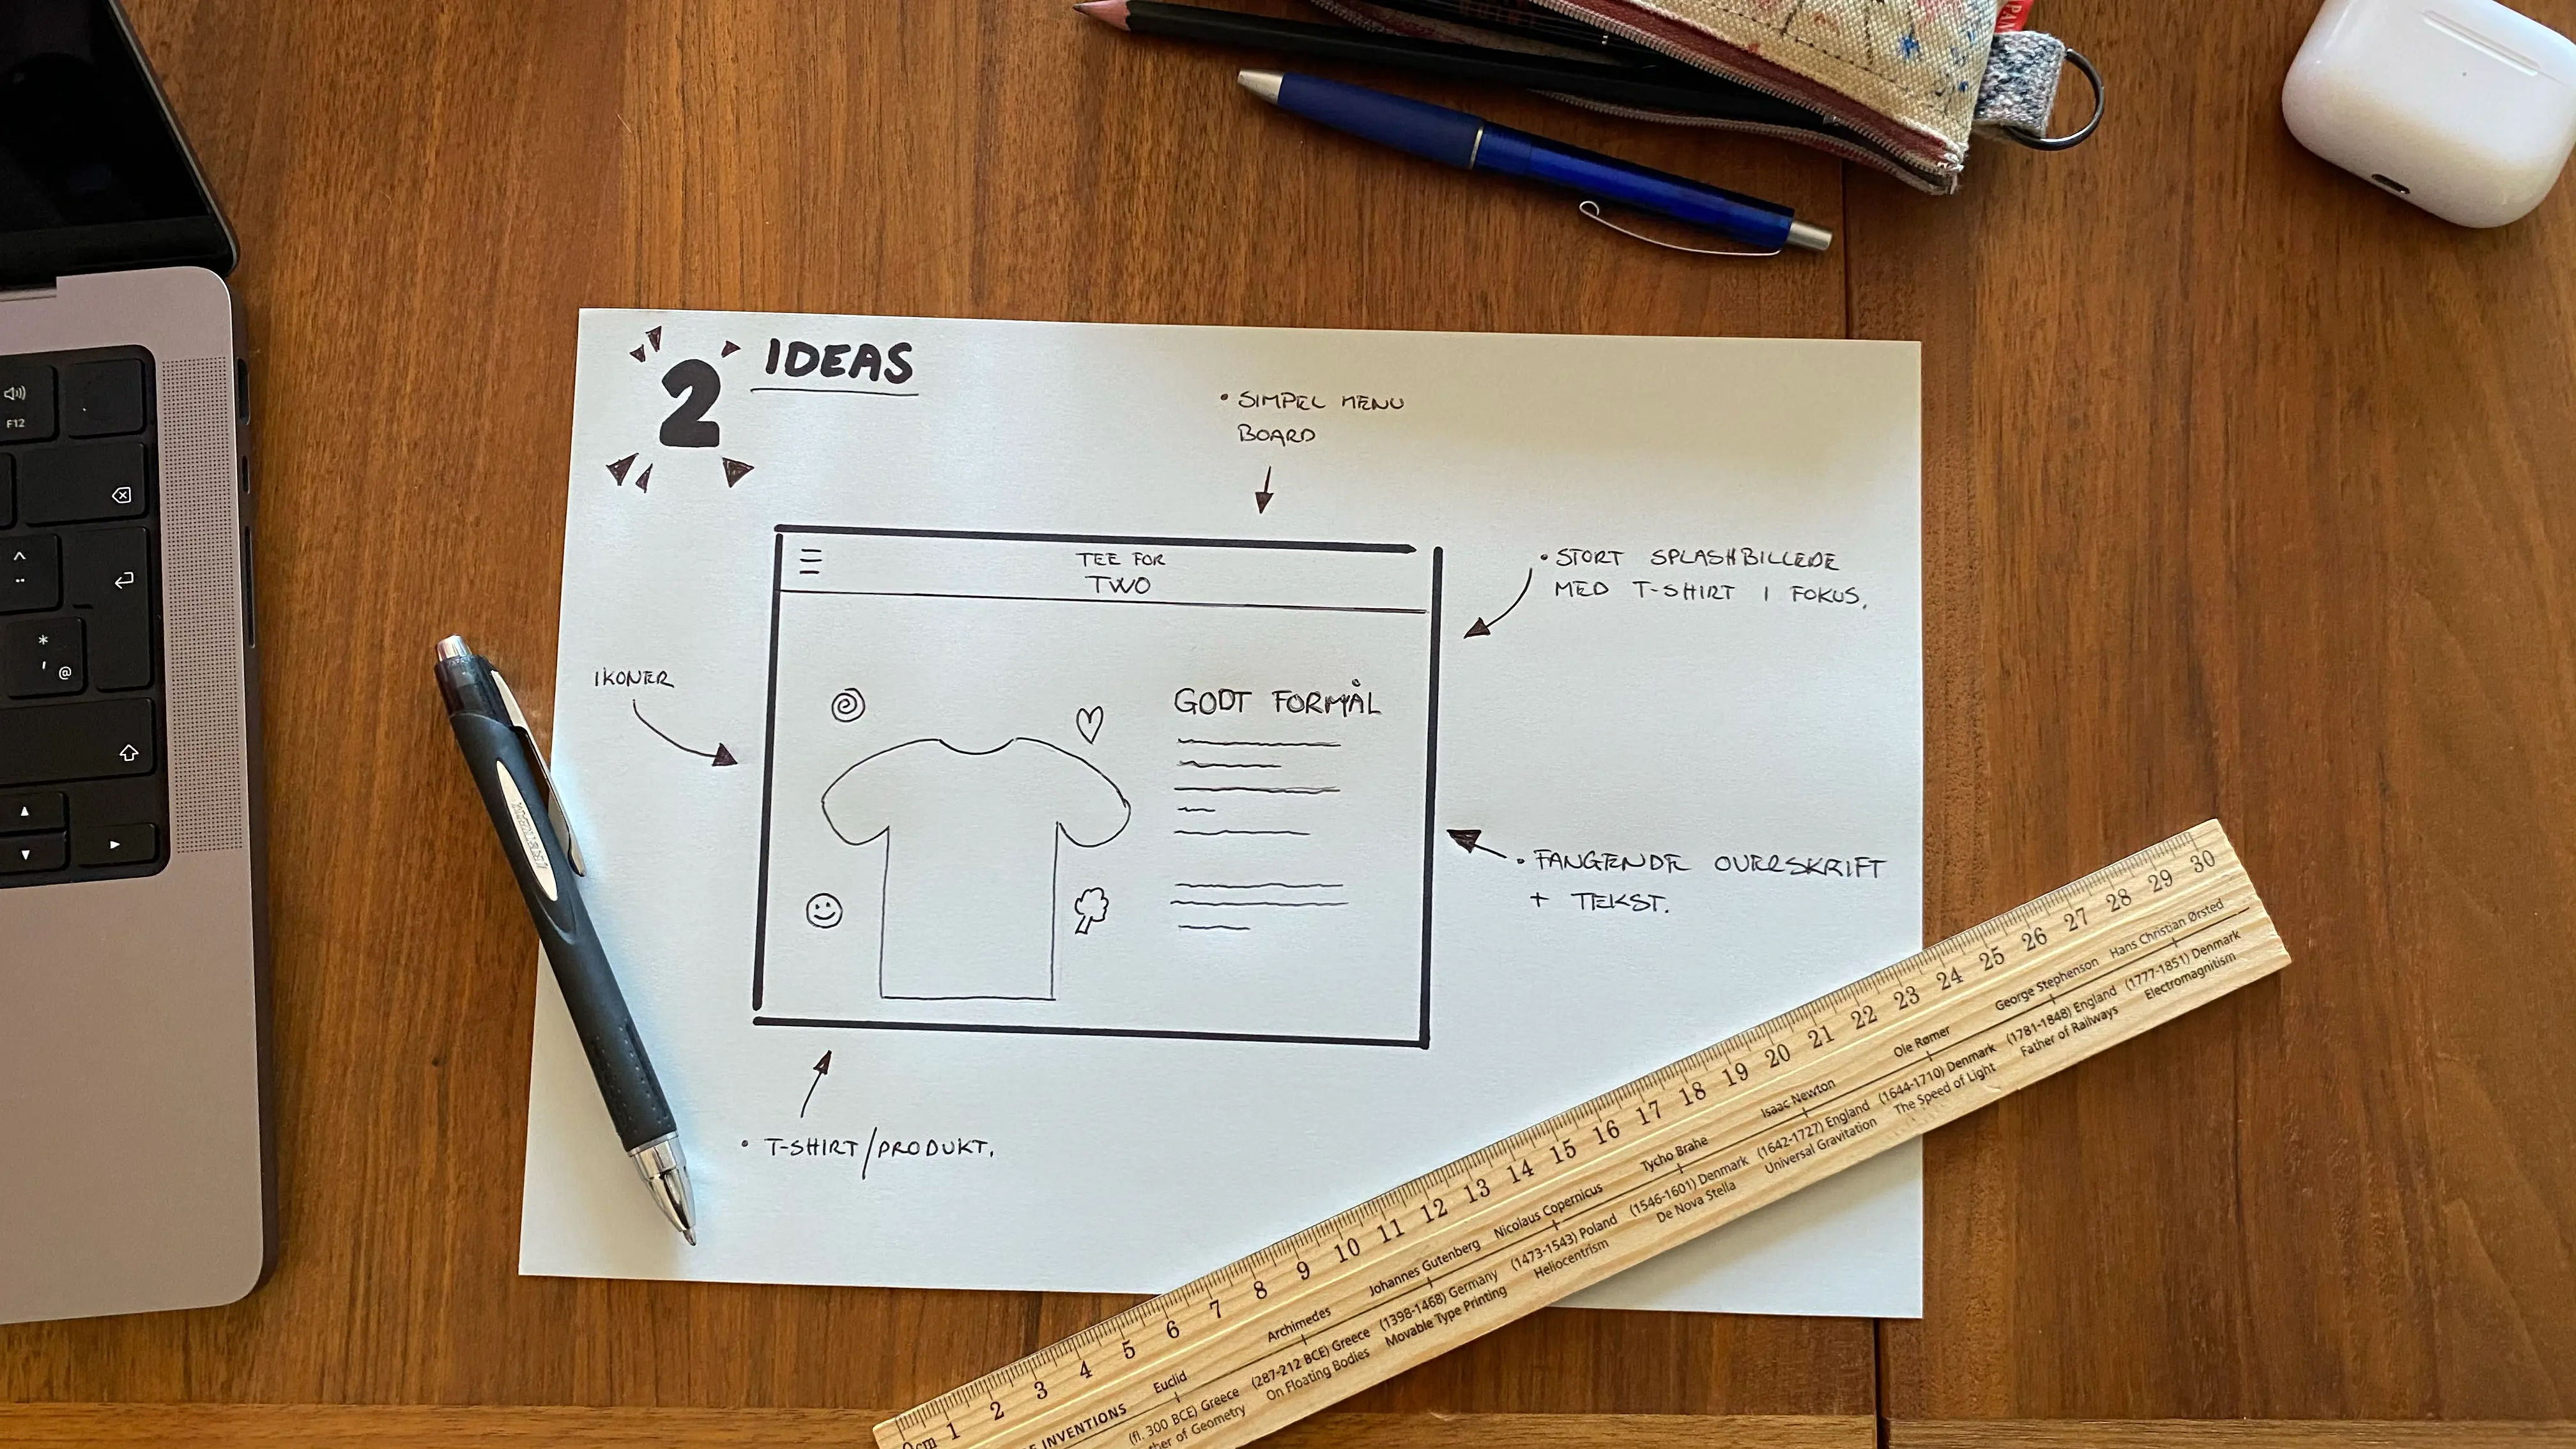 2 IDEAS
• SIMPEL MENU
BOARD
TEE FOR
TWO
• STORT SPLASHBILLEDE
MED T-SHIRT I FOKUS.
IKONER
GODT FORMÅL
• FANGENDE OVERSKRIFT
+ TEKST.
• T-SHIRT/PRODUKT.
F12
*
' @
0cm 1 2 3 4 5 6 7 8 9 10 11 12 13 14 15 16 17 18 19 20 21 22 23 24 25 26 27 28 29 30
INVENTIONS
Euclid
(fl. 300 BCE) Greece
of Geometry
Archimedes
(287-212 BCE) Greece
On Floating Bodies
Johannes Gutenberg
(1398-1468) Germany
Movable Type Printing
Nicolaus Copernicus
(1473-1543) Poland
Heliocentrism
Tycho Brahe
(1546-1601) Denmark
De Nova Stella
Isaac Newton
(1642-1727) England
Universal Gravitation
Ole Rømer
(1644-1710) Denmark
The Speed of Light
George Stephenson
(1781-1848) England
Father of Railways
Hans Christian Ørsted
(1777-1851) Denmark
Electromagnitism